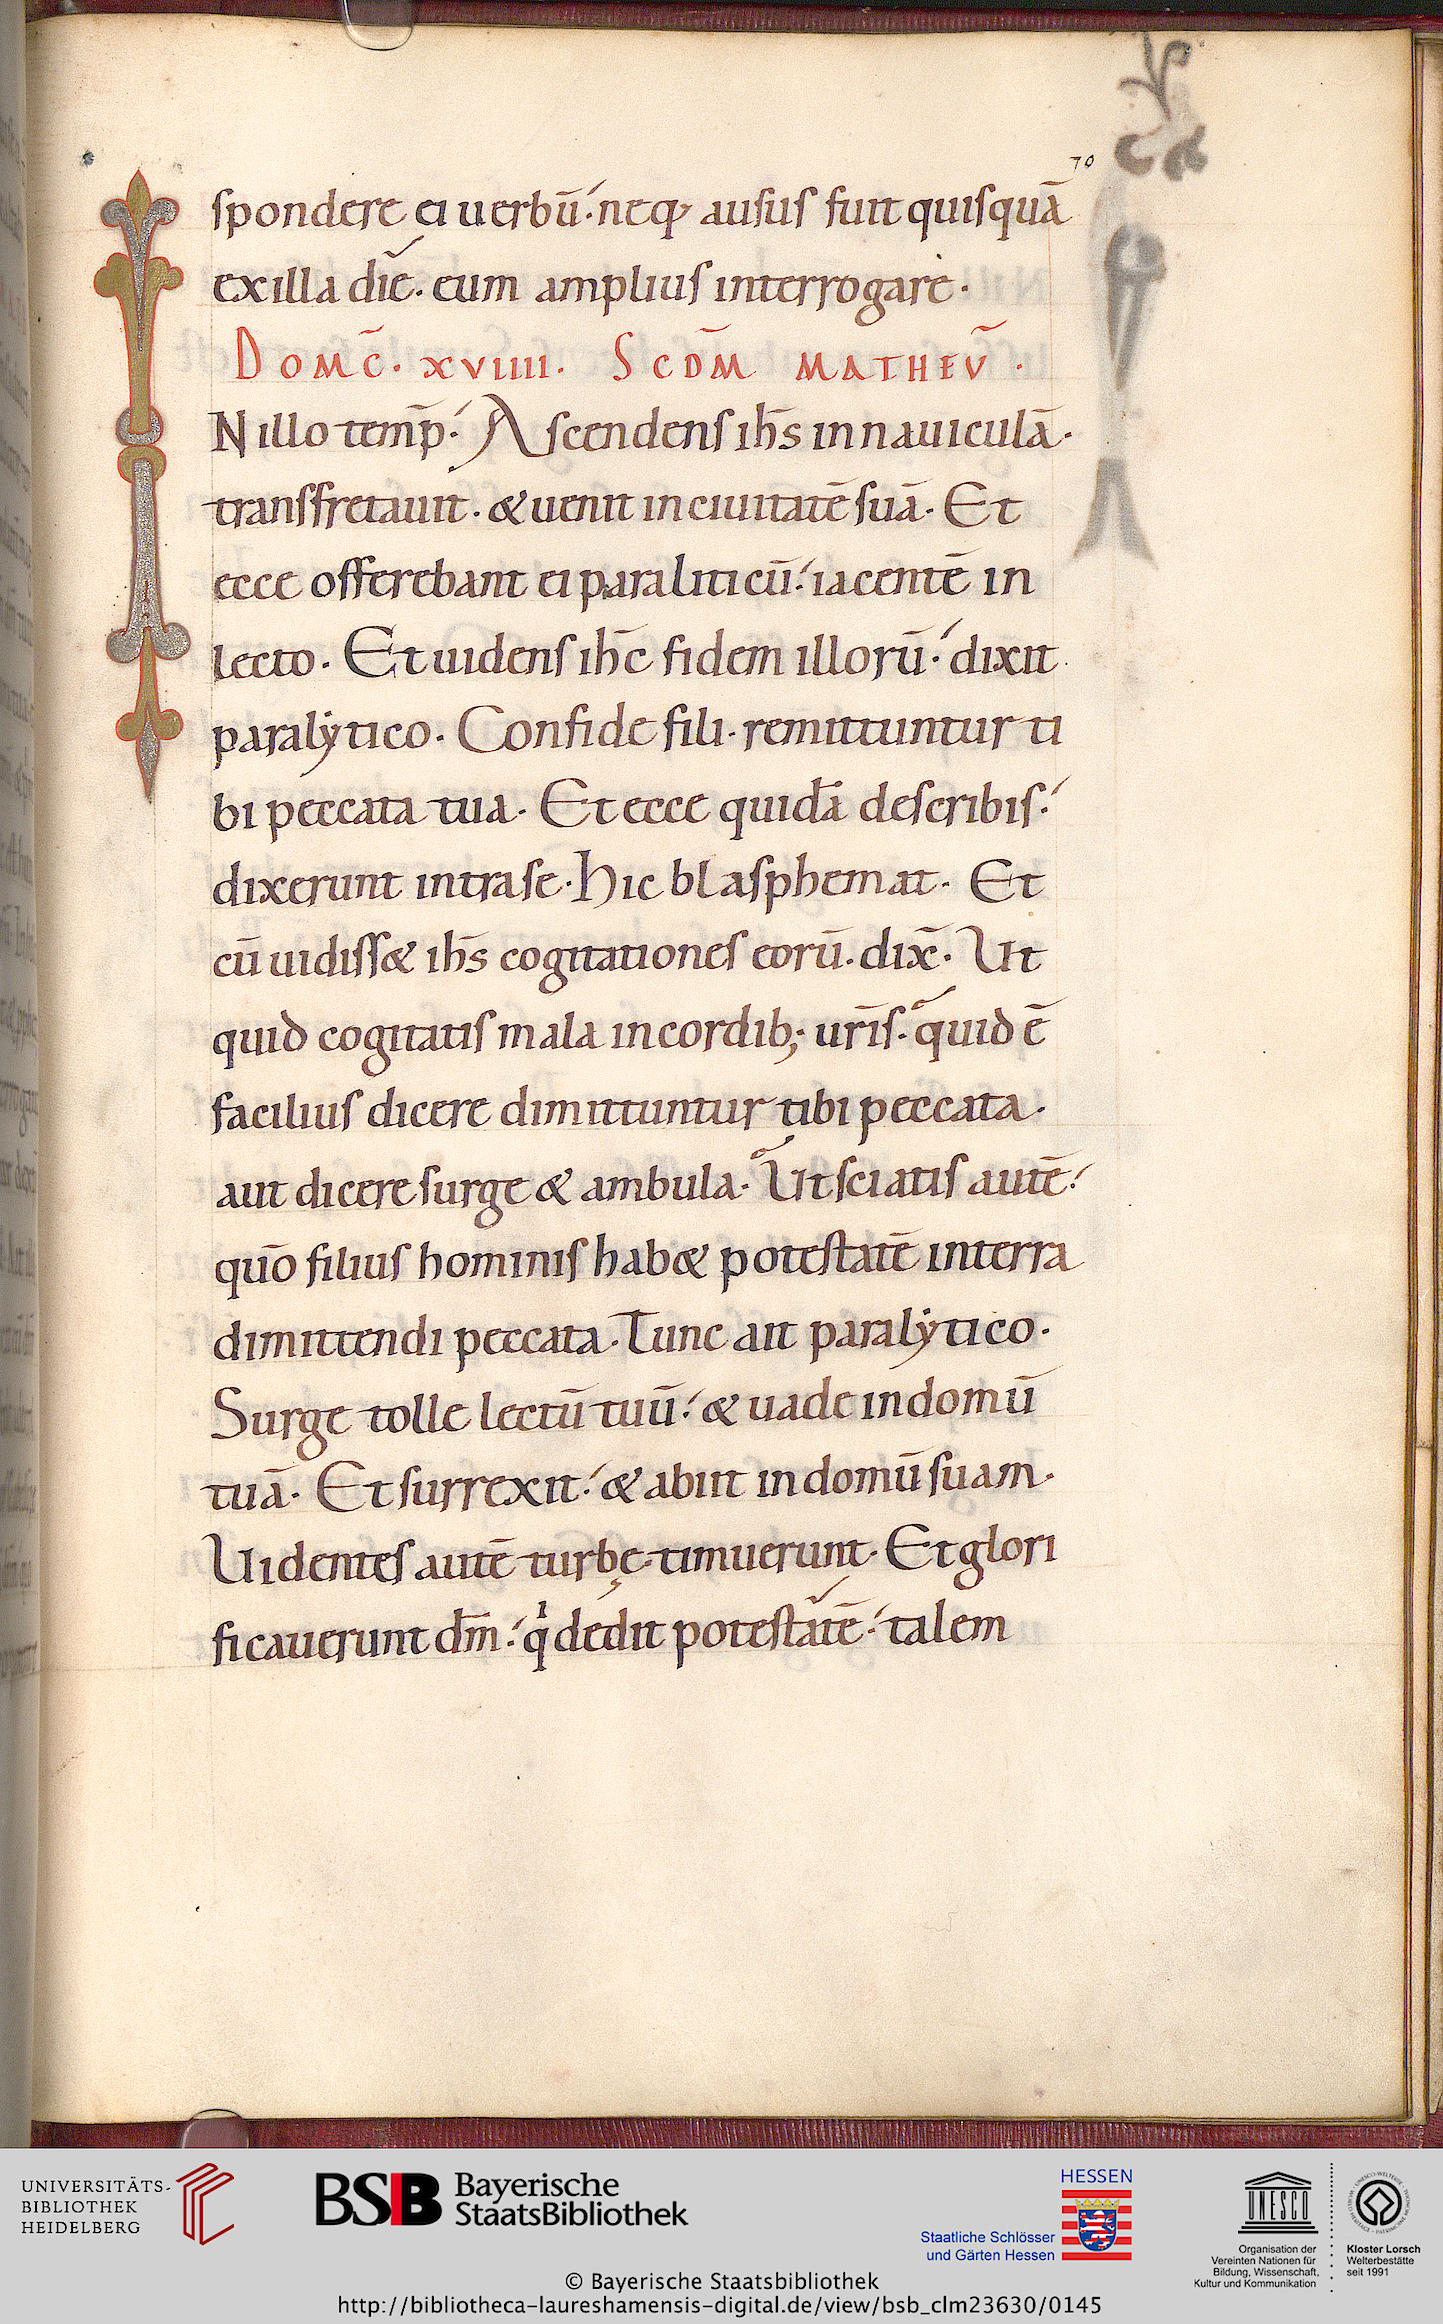 70
spondere ei uerbū. neq; ausus fuit quisquā
ex illa diē. eum amplius interrogare.
DOMC̄. XVIIII. SCDM̄ MATHEV̄.
IN illo temp̄. Ascendens ih̄s in nauiculā.
transfretauit. & uenit in ciuitatē suā. Et
ecce offerebant ei paraliticū. iacentē in
lecto. Et uidens ih̄c fidem illorū. dixit
paralẏtico. Confide fili. remittuntur ti
bi peccata tua. Et ecce quidā de scribis.
dixerunt intra se. Hic blasphemat. Et
cū uidiss& ih̄s cogitationes eorū. dix̄. Ut
quid cogitatis mala in cordib; ur̄is. quid ē
facilius dicere dimittuntur tibi peccata.
aut dicere surge & ambula. Ut sciatis autē.
quō filius hominis hab& potestatē in terra
dimittendi peccata. Tunc ait paralẏtico.
Surge tolle lectū tuū. & uade in domū
tuā. Et surrexit. & abiit in domū suam.
Uidentes autē turbę timuerunt. Et glori
ficauerunt dm̄. qⁱ dedit potestatē. talem
UNIVERSITÄTS-
BIBLIOTHEK
HEIDELBERG
BSB Bayerische
StaatsBibliothek
HESSEN
Staatliche Schlösser
und Gärten Hessen
UNESCO
Organisation der
Vereinten Nationen für
Bildung, Wissenschaft,
Kultur und Kommunikation
Kloster Lorsch
Welterbestätte
seit 1991
© Bayerische Staatsbibliothek
http://bibliotheca-laureshamensis-digital.de/view/bsb_clm23630/0145